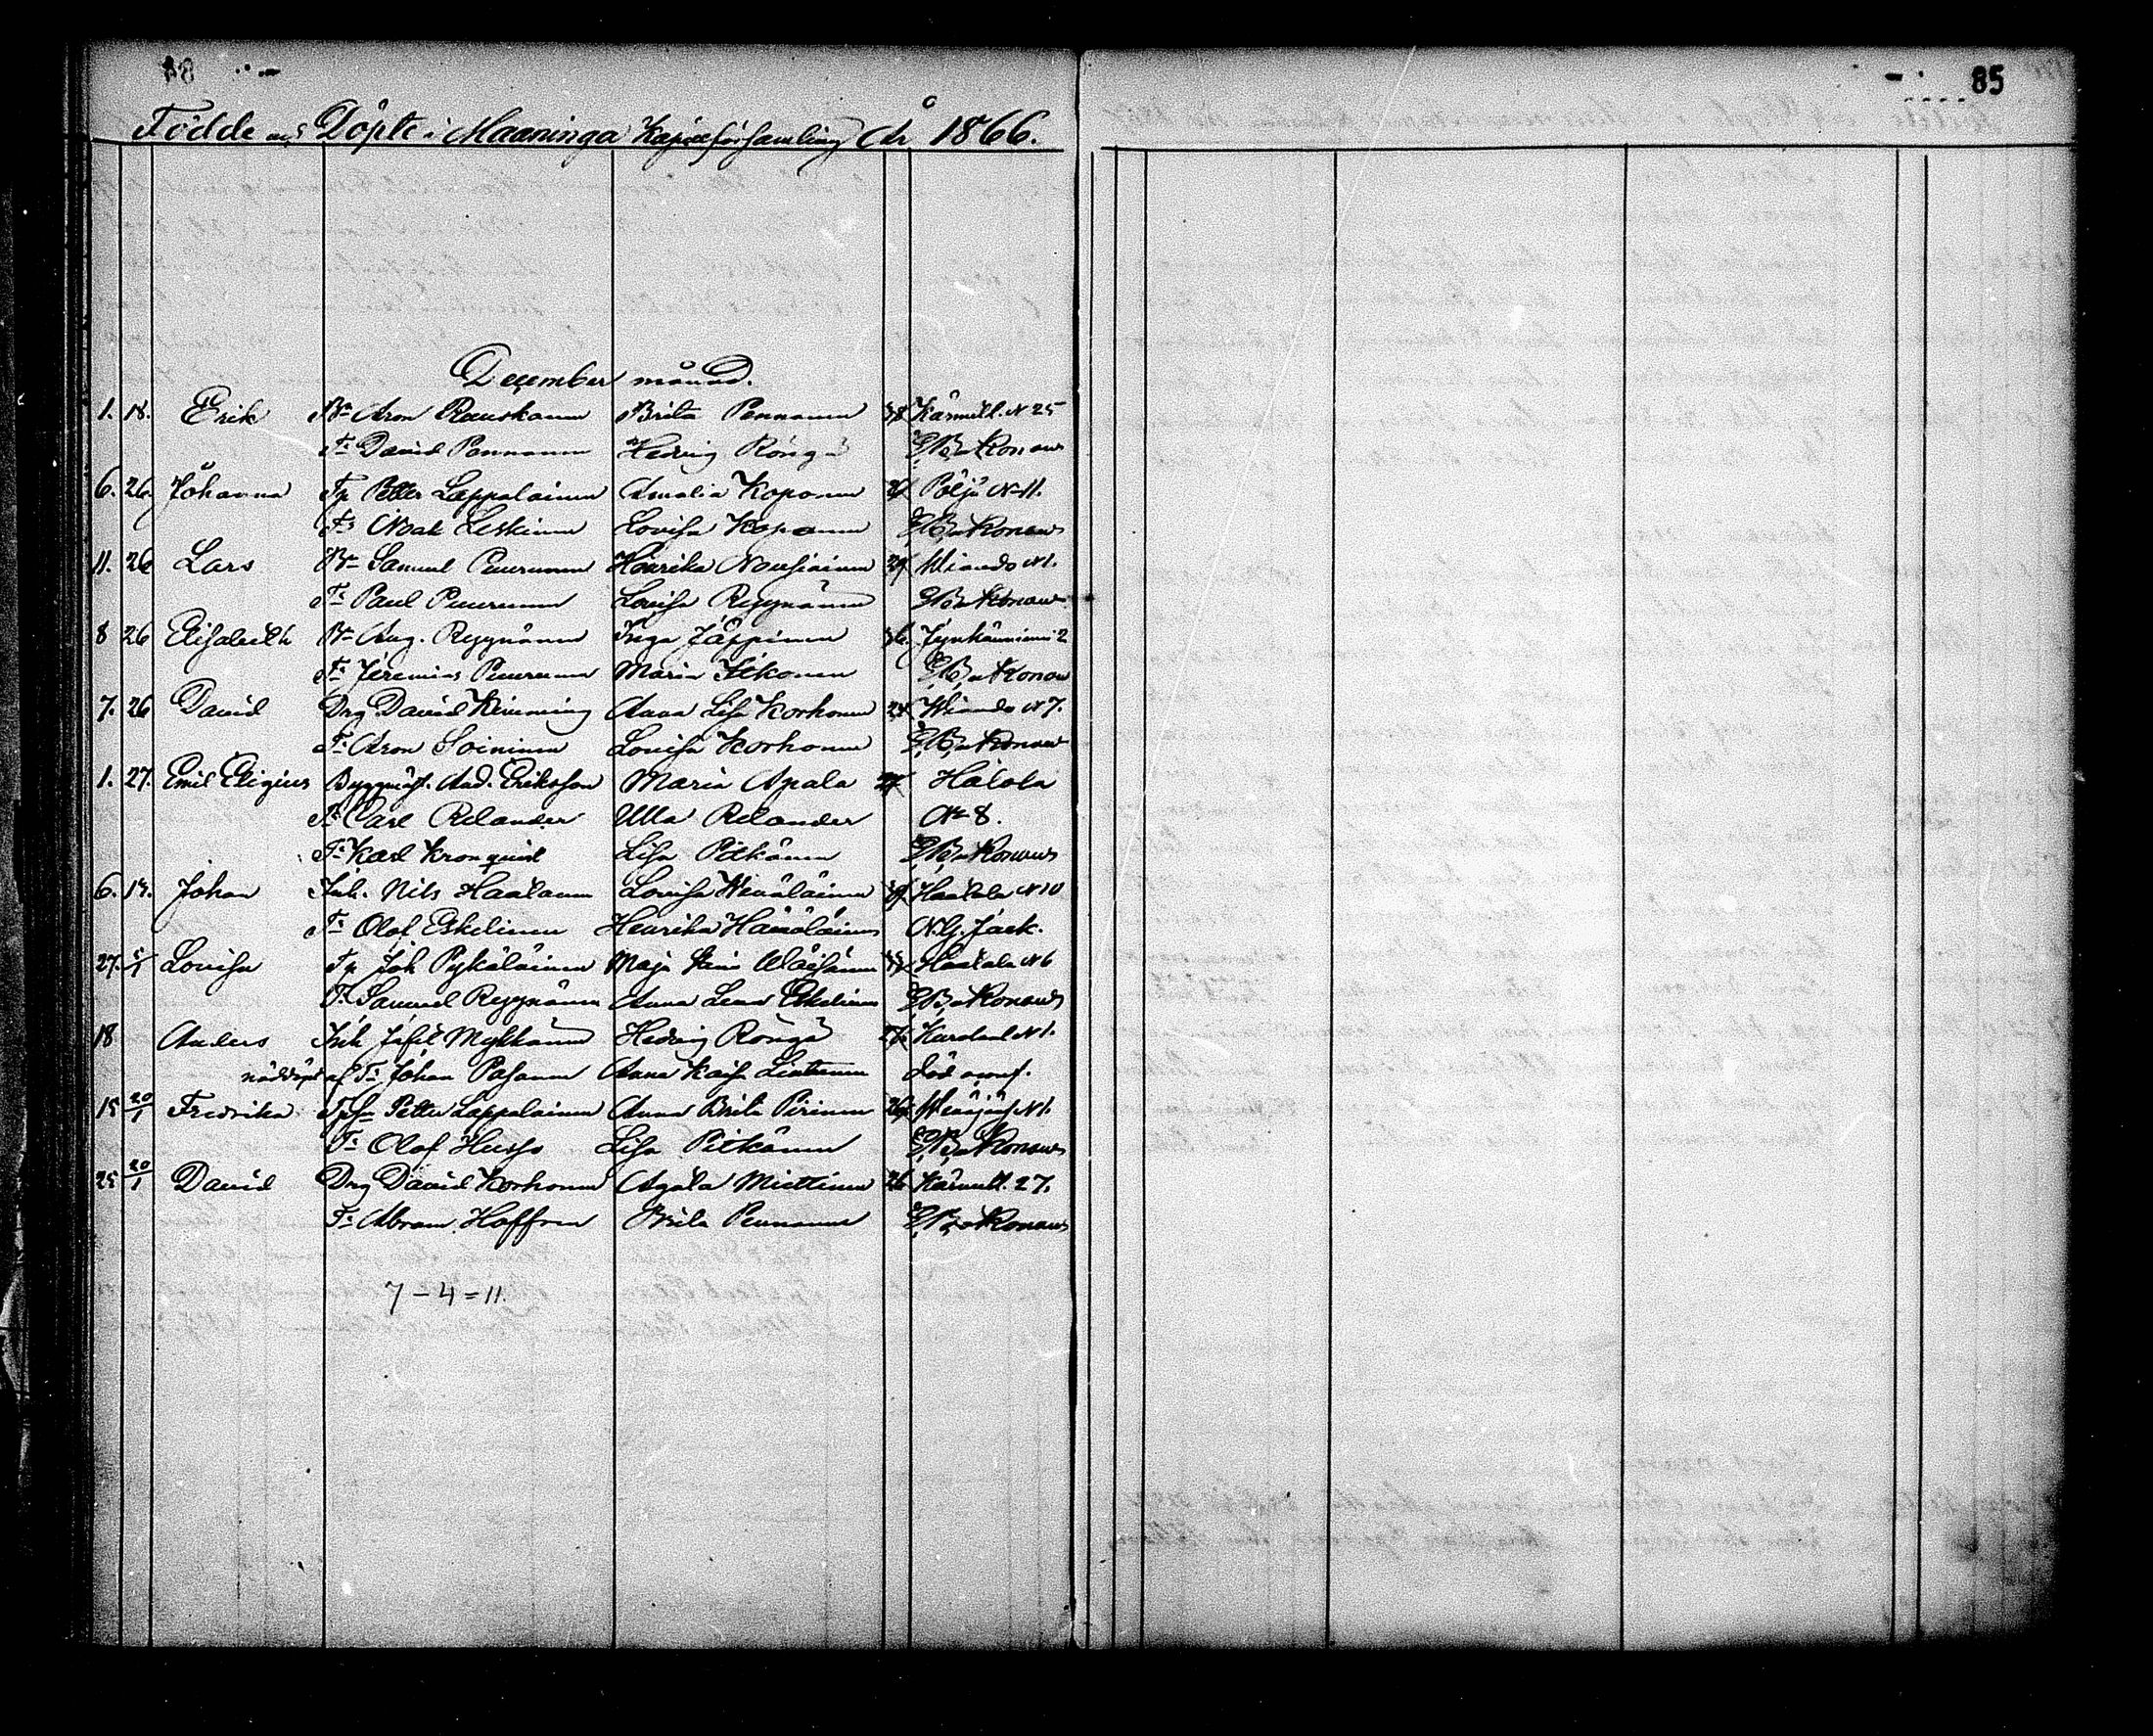 85
Födde och Döpte i Maaninga Kapellförsamling År 1866.
December månad.
1. 18. Erik Bn Aron Ruuskanen Brita Pennanen 38 Kärmill. N 25
Fr David Pennanen Hedvig Röngä
6. 26. Johanna Tp Petter Lappalainen Amalia Koponen Pöljä N 11.
Fr Noak Leskinen Lovisa Koponen
11. 26 Lars Bn Samuel Puurunen Henrika Nousiainen 29 Wiando N 1.
Fr Paul Puurunen Lovisa Ryynänen
8 26 Elisabeth Bn Aug. Ryynänen Inga Jäppinen 36. Jynkänniemi 2
Fr Jeremias Puurunen Maria Itkonen
7. 26 David Drg David Kimming Anna Lisa Korhonen 24 Wiando N 7.
Fr Aron Soininen Lovisa Korhonen
1. 27. Emil Eligius Byggmäst. And. Eriksson Maria Apala 27 Halola
Fr Carl Relander Ulla Relander N 8.
Fr Karl Kronquist Lisa Pitkänen
6. Johan Inh. Nils Haatanen Lovisa Wenäläinen Haatala N 10
Fr Olof Eskelinen Henrika Hämäläinen N. G. Jack.
27. 5/1 Lovisa Tp Joh Pykäläinen Maja Stina Väisänen Haatala N 6
Fr Samuel Ryynänen Anna Lena Eskelinen
18 Anders Inh Josef Mykkänen Hedvig Röngä N 1.
nöddöpt af Fr Johan Pasanen Anna Kaisa Lintunen död
15 20/1 Fredrika Petter Lappalainen Anna Brita Pirinen 26 Wenäjäs. N 1.
Fr Olof Husso Lisa Pitkänen
25 20/1 David Drg David Korhonen Agata Miettinen 26 Kärmill. 27.
Fr Abram Hoffren Brita Pennanen
7 – 4 = 11.